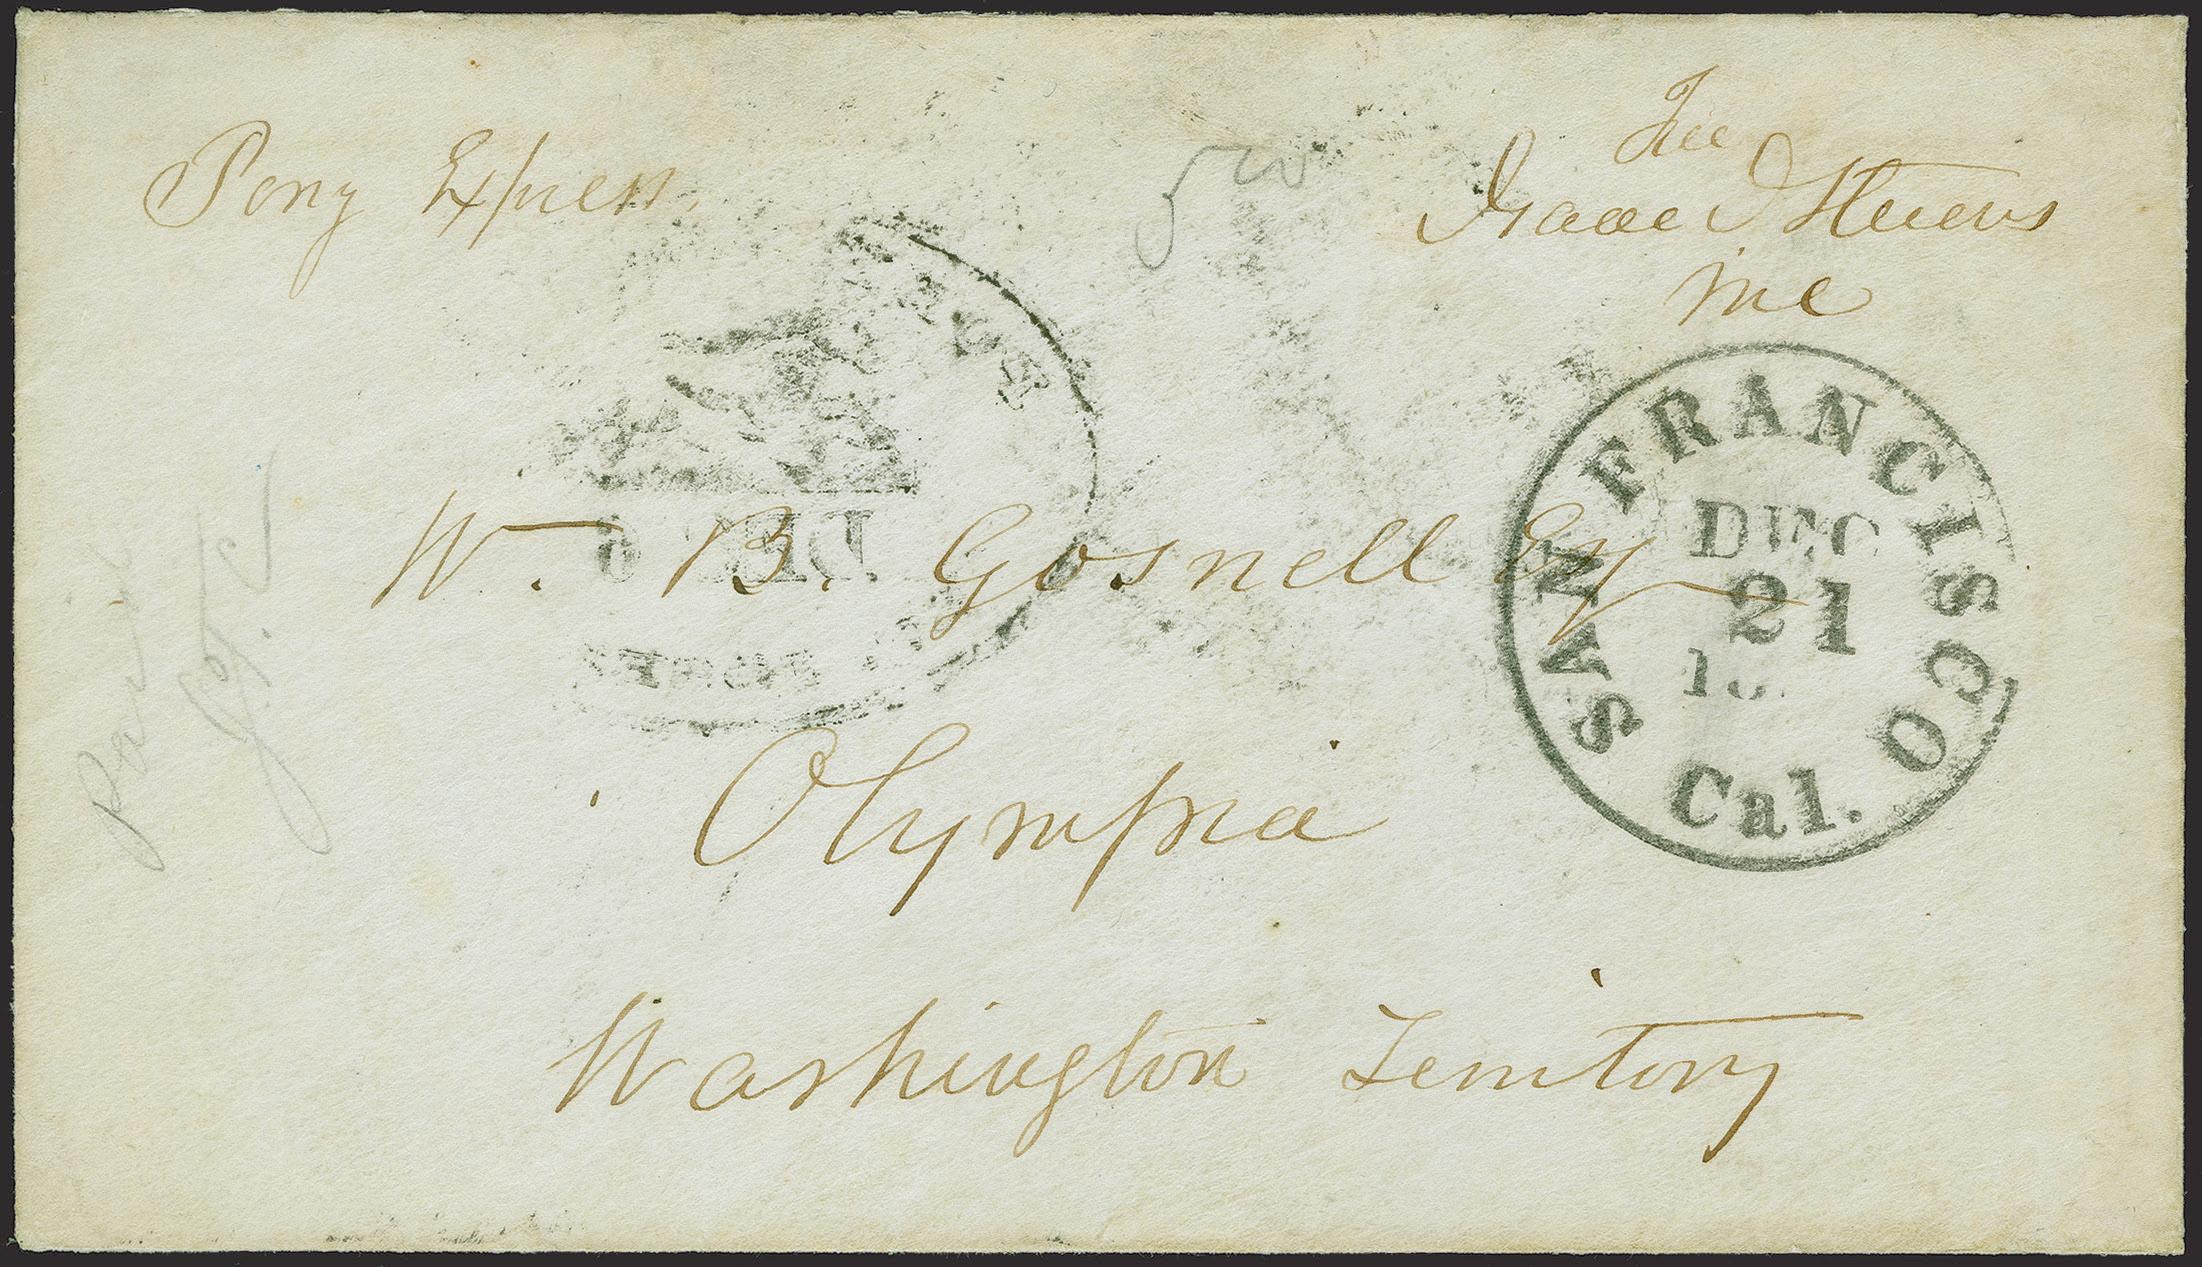 Pony Express.
500
Free
Isaac I Stevens
MC
SAN FRANCISCO
DEC
21
Cal.
W. B. Gosnell Esq
Olympia
Washington Territory
Paid